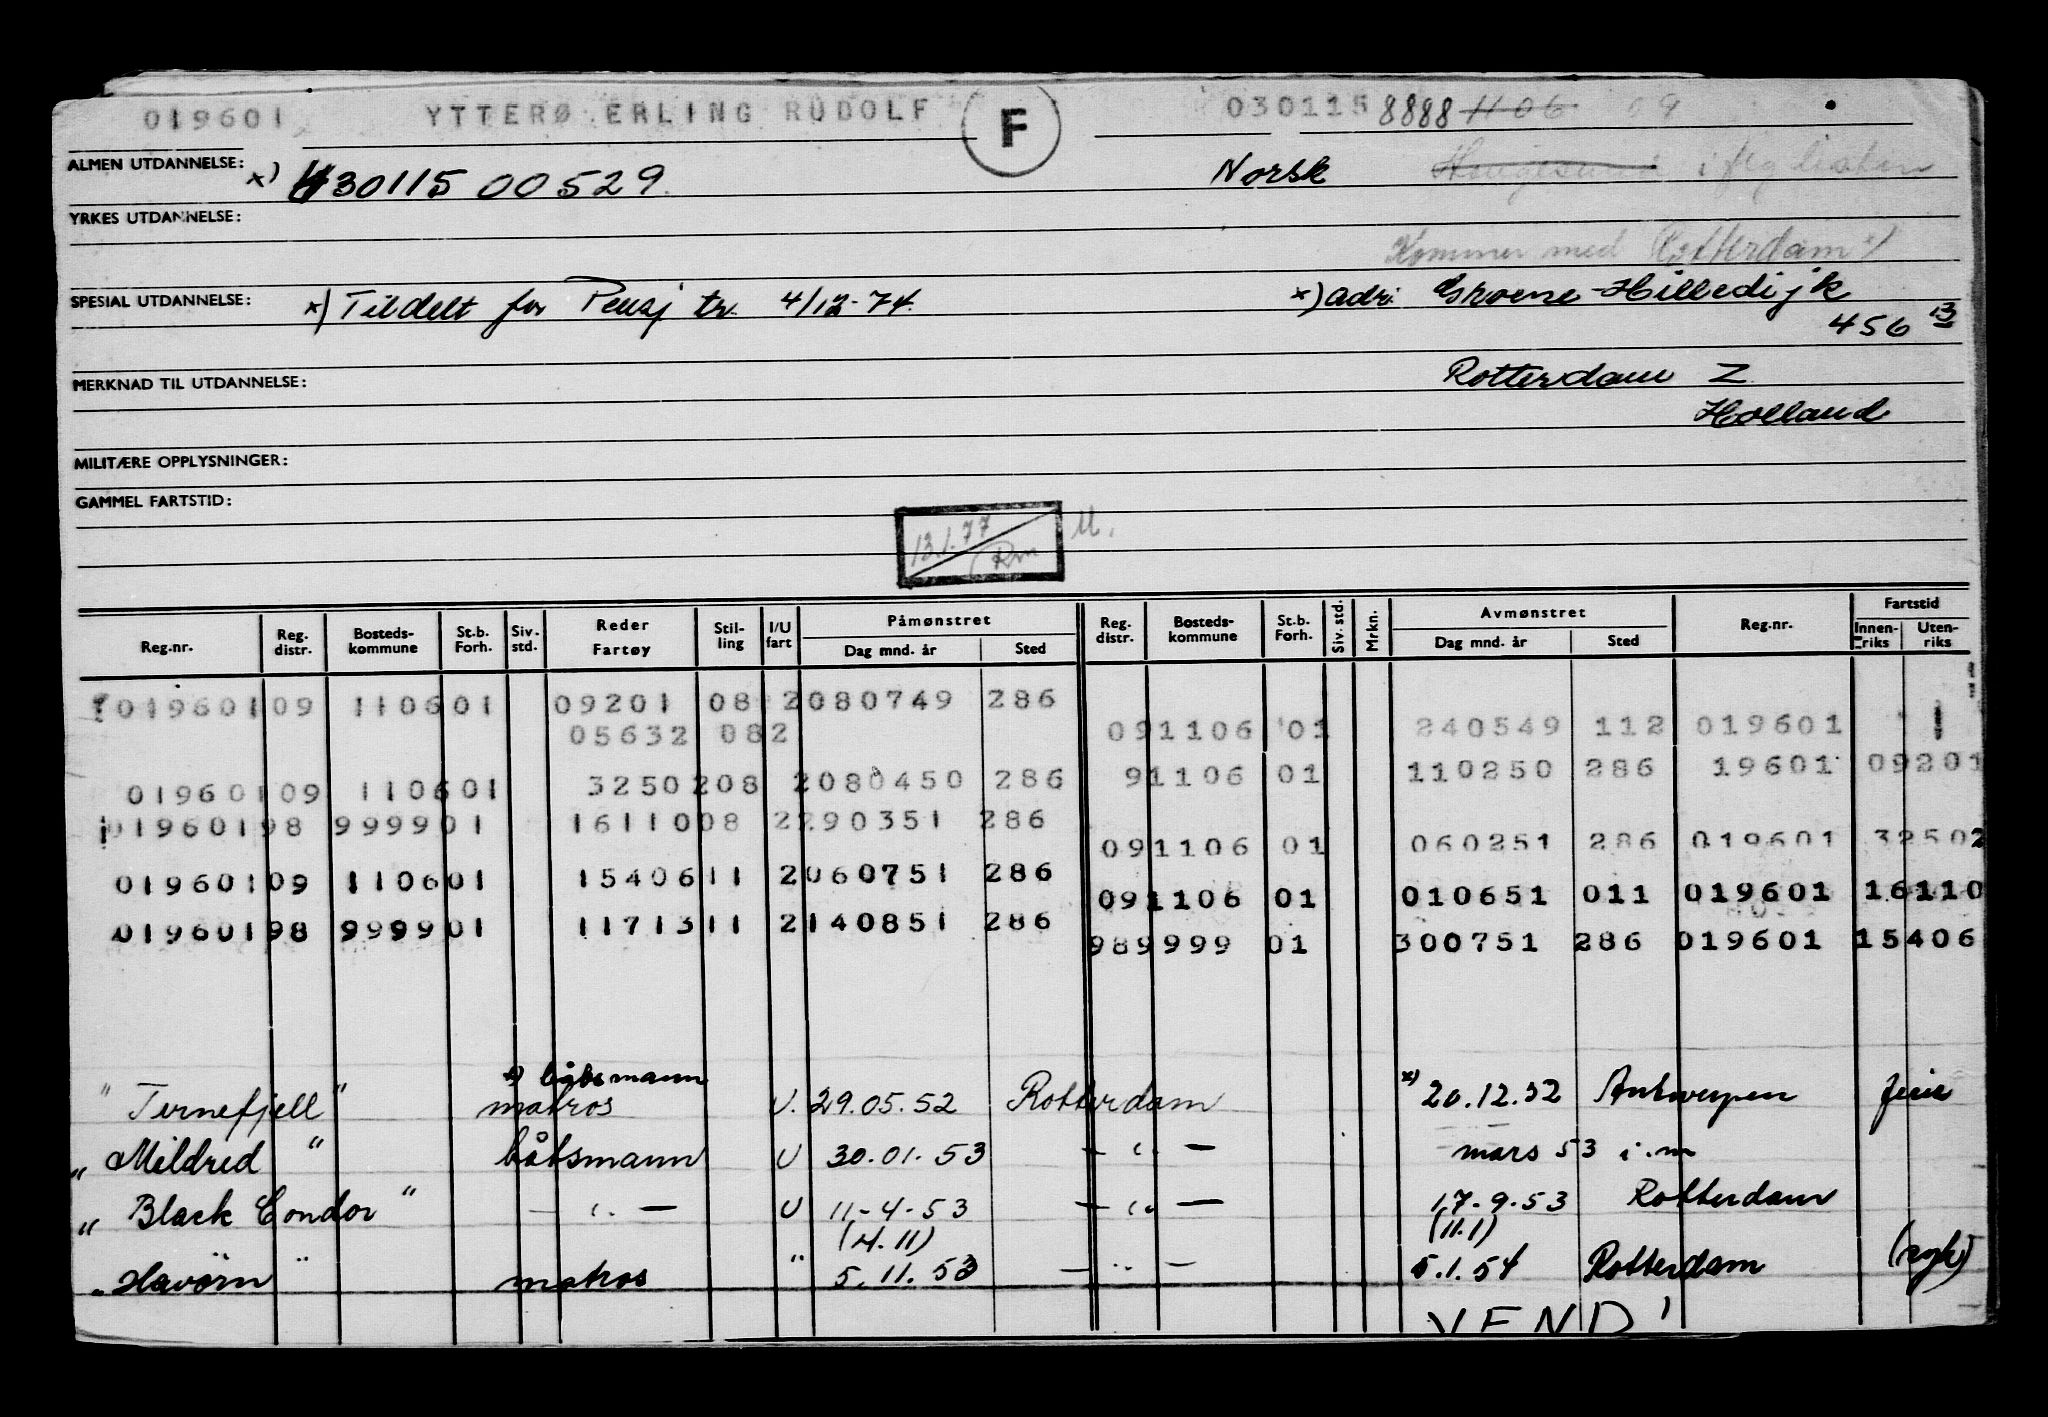 019601 YTTERØ ERLING RUDOLF F 030115 8888 1106 09
ALMEN UTDANNELSE: x) 030115 00529 Norsk Haugesund i flg
YRKES UTDANNELSE:
Kommer med Rotterdam x)
SPESIAL UTDANNELSE: x) Tildelt for Pensj tr. 4/12-74. x) adr: Groene-Hilledijk
456 B
MERKNAD TIL UTDANNELSE: Rotterdam Z
Holland
MILITÆRE OPPLYSNINGER:
GAMMEL FARTSTID:
13.1.77 M.
Reg.nr. Reg. distr. Bosteds- kommune St.b. Forh. Siv. std. Reder Fartøy Stil- ling I/U fart Påmønstret Dag mnd. år Sted Reg. distr. Bosteds- kommune St.b. Forh. Siv. std. Mrkn. Avmønstret Dag mnd. år Sted Reg.nr. Fartstid Innen- riks Uten- riks
019601 09 1106 01 09201 08 2 080749 286
05632 08 2 09 1106 01 240549 112 019601
9 1106 01 110250 286 19601 09201
019601 09 1106 01 32502 08 2 080450 286
019601 98 9999 01 16110 08 2 290351 286
09 1106 01 060251 286 019601 32502
019601 09 1106 01 15406 11 2 060751 286
09 1106 01 010651 011 019601 16110
019601 98 9999 01 11713 11 2 140851 286
98 9999 01 300751 286 019601 15406
x) båtsmann
"Ternefjell" matros U. 29.05.52 Rotterdam x) 20.12.52 Antwerpen ferie
"Mildred" båtsmann U 30.01.53 - " - mars 53 i.m
"Black Condor" - " - U 11-4-53 - " - 17-9-53 Rotterdam
(4.11) (11.1)
"Havörn" matros " 5.11.53 - " - 5.1.54 Rotterdam (syk)
VEND!